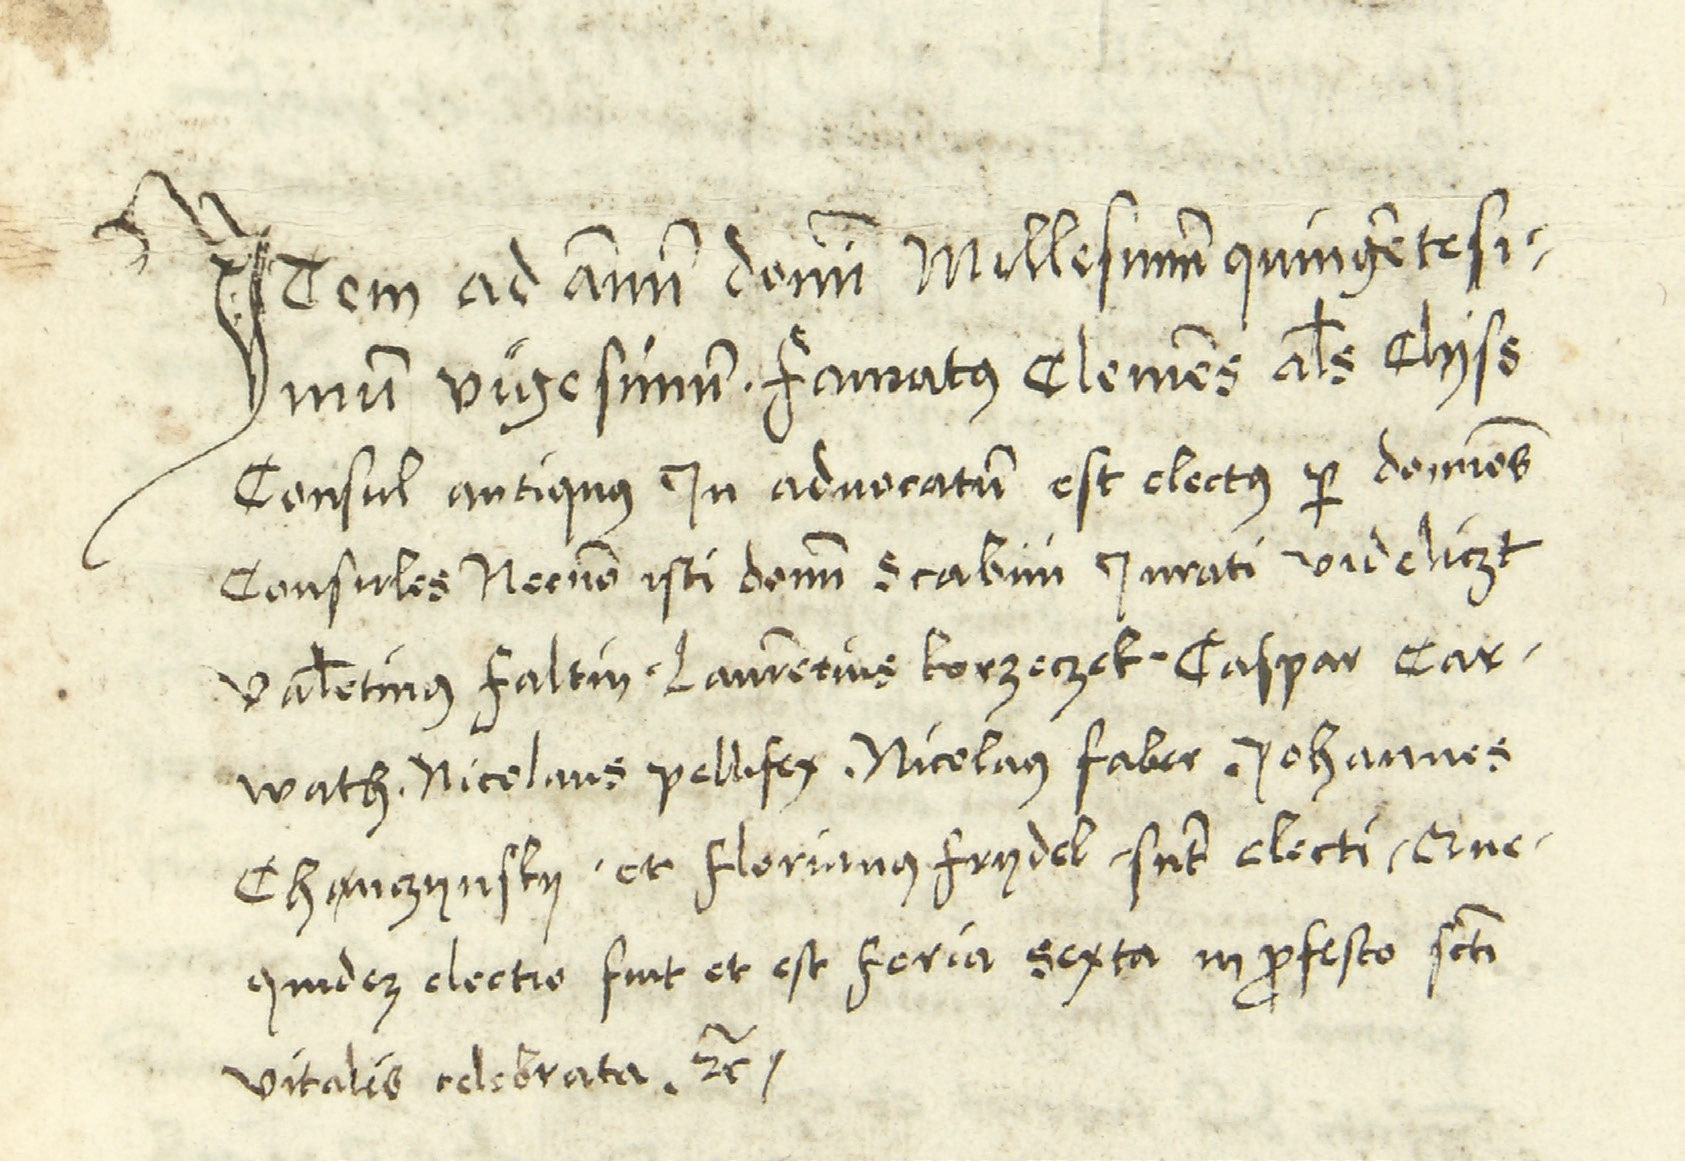 Item ad ānnū domī Millesimū quingētesi-
mū vigesimū. Famatꝯ Clemēs al̄s Chyss
Consul antiquꝯ In advocatū est electꝯ ꝑ domīos
Consules Necnō isti domī Scabini Jurati videliczt
Valētinꝯ Faltin. Laurētius korzeczek. Caspar Car-
wath. Nicolaus pellifex. Nicolaꝯ faber. Johannes
Chanczynsky. et Florianꝯ Frydel. sūt electi. Que-
quidez electio fuit et est Feria Sexta in ꝓfesto sc̄ti
Vitalis celebrata. ⁊c̄